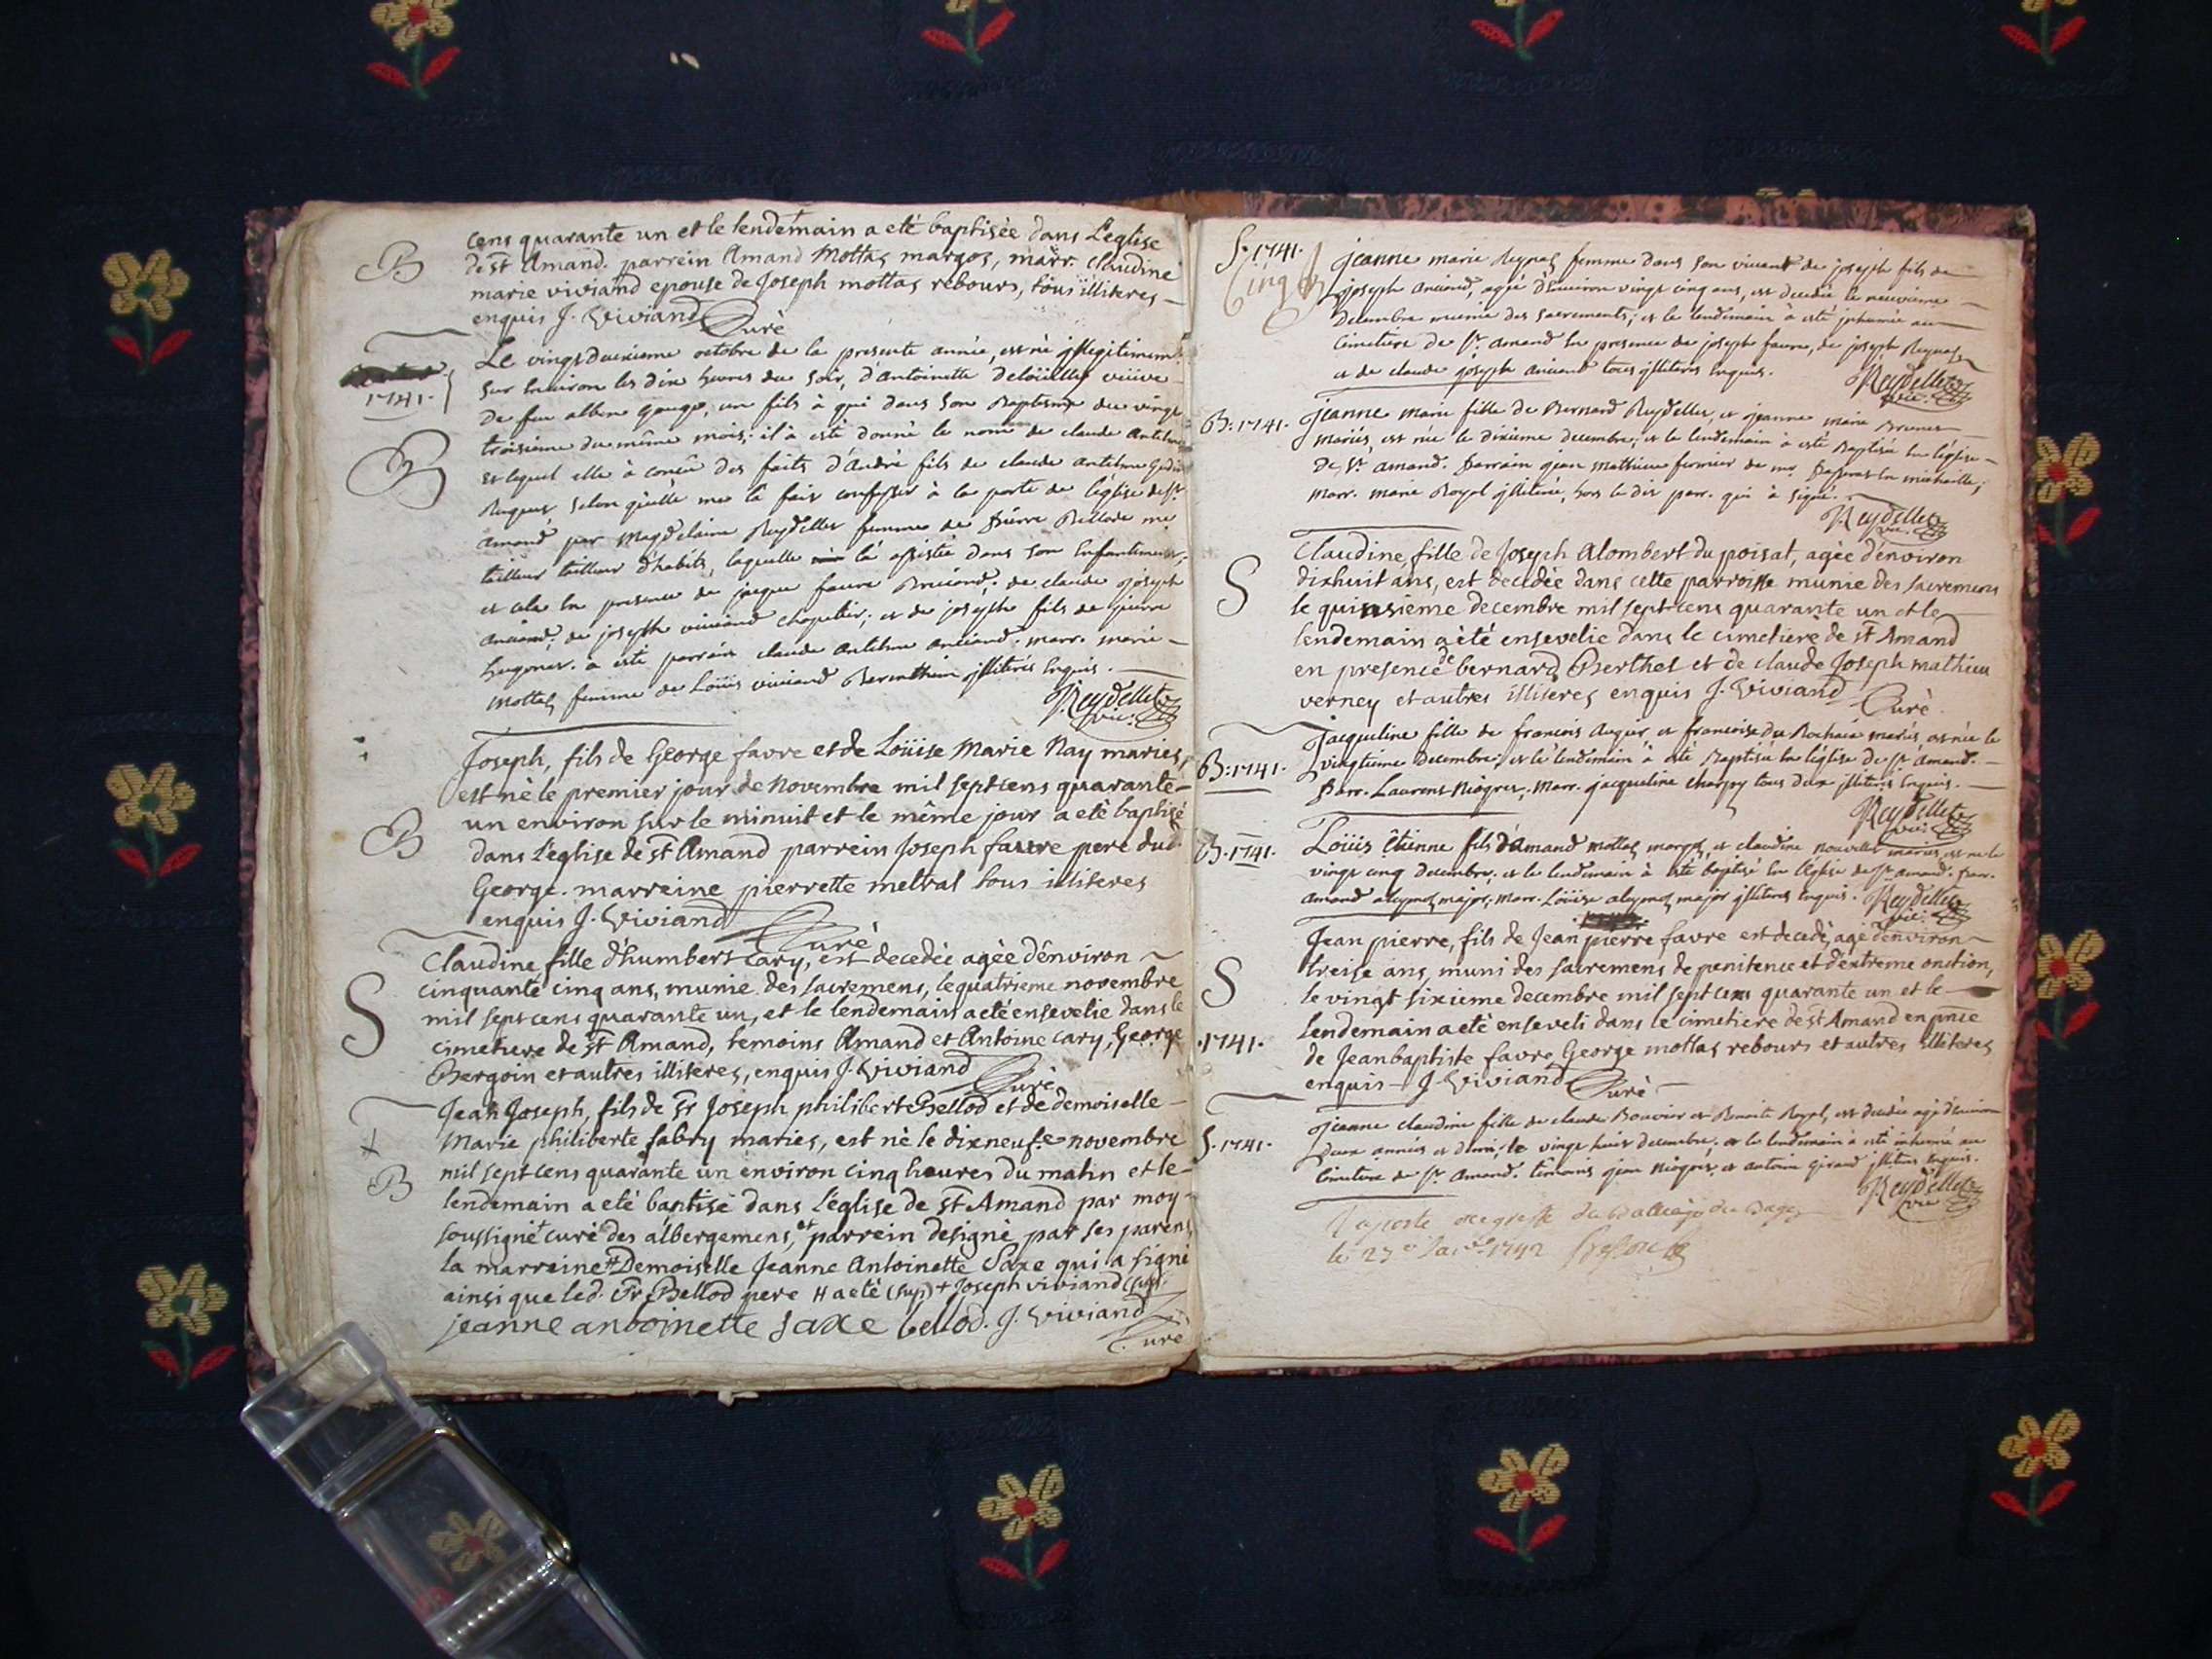 B
cens quarante un et le lendemain a eté baptisée dans L'eglise
de st Amand. parrein Amand Mottas margos, marr. Claudine
marie viviand epouse de Joseph mottas rebours, tous illiteres
enquis J. Viviand Curé
1741.
Le vingt deuxieme octobre de la presente année, est né illegitimem.
sur Environ les dix heures du soir, d'Antoinette Deloüille veüve
De feu alben gouge, un fils à qui dans son Baptesme du vingt
B
troisieme du même mois, il à esté donné le nom de claude Antelme
et lequel elle à conçû des faits d'André fils de claude antelme
selon qu'elle me la fait confesser à la porte de l'eglise de st
amand par Magdelaine Reydellet femme de pierre Bellode me
tailleur tailleur d'habits, laquelle la assistée dans son Enfantement,
et cela En presence de jaque favre Anciand, de claude joseph
Anciand, de joseph viviand chapelier, et de joseph fils de pierre
hugonet. a esté parrain claude antelme anciand. marr. marie
mottas femme de Loüis viviand illiterés Enquis.
Reydellet vic.
Joseph, fils de George favre et de Loüise Marie Nay mariés,
est né le premier jour de novembre mil septcens quarante
un environ sur le minuit et le même jour a eté baptisé
B
dans L'eglise de st Amand parrein Joseph favre pere dud.
George. marreine pierrette metral tous illiteres
enquis J. Viviand Curé
Claudine fille d'humbert Cary, est decedée agée d'environ
S
cinquante cinq ans, munie des sacremens, le quatrieme novembre
mil septcens quarante un, et le lendemain a eté ensevelie dans le
cimetiere de st Amand, temoins Amand et Antoine Cary, George
Bergoin et autres illiteres, enquis J. Viviand Curé
Jean Joseph, fils de Sr Joseph philibert Bellod et de demoiselle
Marie philiberte fabry mariés, est né le dixneufe novembre
B
mil septcens quarante un environ cinq heures du matin et le
lendemain a eté baptisé dans L'eglise de st Amand par moy
soussigné + curé des albergemens, et parrein designé par ses parens
la marreine # Demoiselle Jeanne Antoinette Saxe qui a signé
ainsi que led. Sr Bellod pere # a eté (sup) + Joseph viviand (sup)
jeanne antoinette saxe bellod. J. Viviand
Curé
S. 1741.
Cinq
jeanne marie Reynas femme dans son vivant de joseph fils de
joseph Anciand, agée d'Environ vingt cinq ans, est decedée le neuvieme
Decembre munie des sacrements, et le lendemain à esté inhumée au
Cimetiere de st amand En presence de joseph favre, de joseph Reynas
et de claude joseph anciand tous illiterés Enquis.
Reydellet vic.
B. 1741.
jeanne marie fille de Bernard Reydellet, et jeanne marie Brunet
mariés, est née le dixieme decembre, et le lendemain à esté Baptisée En l'église
De st amand. Parrain jean Mathieu fermier de mr Passerat En michaille,
marr. marie Royol illiterée, hors le dit parr. qui à signé.
Reydellet vic.
S
Claudine fille de Joseph Alombert du poisat, agée d'environ
dixhuit ans, est decedée dans cette parroisse munie des sacremens
le quinsieme decembre mil septcens quarante un et le
lendemain a été ensevelie dans le cimetiere de st Amand
en presence de bernard Berthet et de claude Joseph mathieu
verney et autres illiteres enquis J. Viviand Curé
B. 1741.
jacqueline fille de francois augier et francoise du Rochaix mariés est née le
vingtieme decembre, et le lendemain à esté Baptisée En l'église de st amand.
Parr. Laurens Niogret, marr. jacqueline charpy tous deux illiterés Enquis.
Reydellet vic.
B. 1741.
Loüis êtienne fils d'amand mottas margos, et claudine nouvellet mariés, est né le
vingt cinq decembre, et le lendemain à esté baptisé En l'église de st amand. parr.
amand major, marr. Loüise major illiterés Enquis. Reydellet vic.
Jean pierre, fils de Jean pierre favre est decedé, agé d'environ
S
treise ans, muni des sacremens de penitence et d'extreme onction,
le vingt sixieme decembre mil septcens quarante un et le
1741.
lendemain a eté enseveli dans le cimetiere de st Amand en pnce
de Jeanbaptiste favre, George mottas rebours et autres illiteres
enquis J. Viviand Curé
S. 1741.
jeanne claudine fille de claude Bouvier et Benoite Royol, est decedée agée d'Environ
deux années et demi, le vingt huit decembre, et le lendemain à esté inhumée au
Cimetiere de st amand. témoins jean Niogret, et antoine Girand illiterés Enquis.
Reydellet vic.
aporté au greffe du Balliage du Bugey
le 27e Janvr 1742